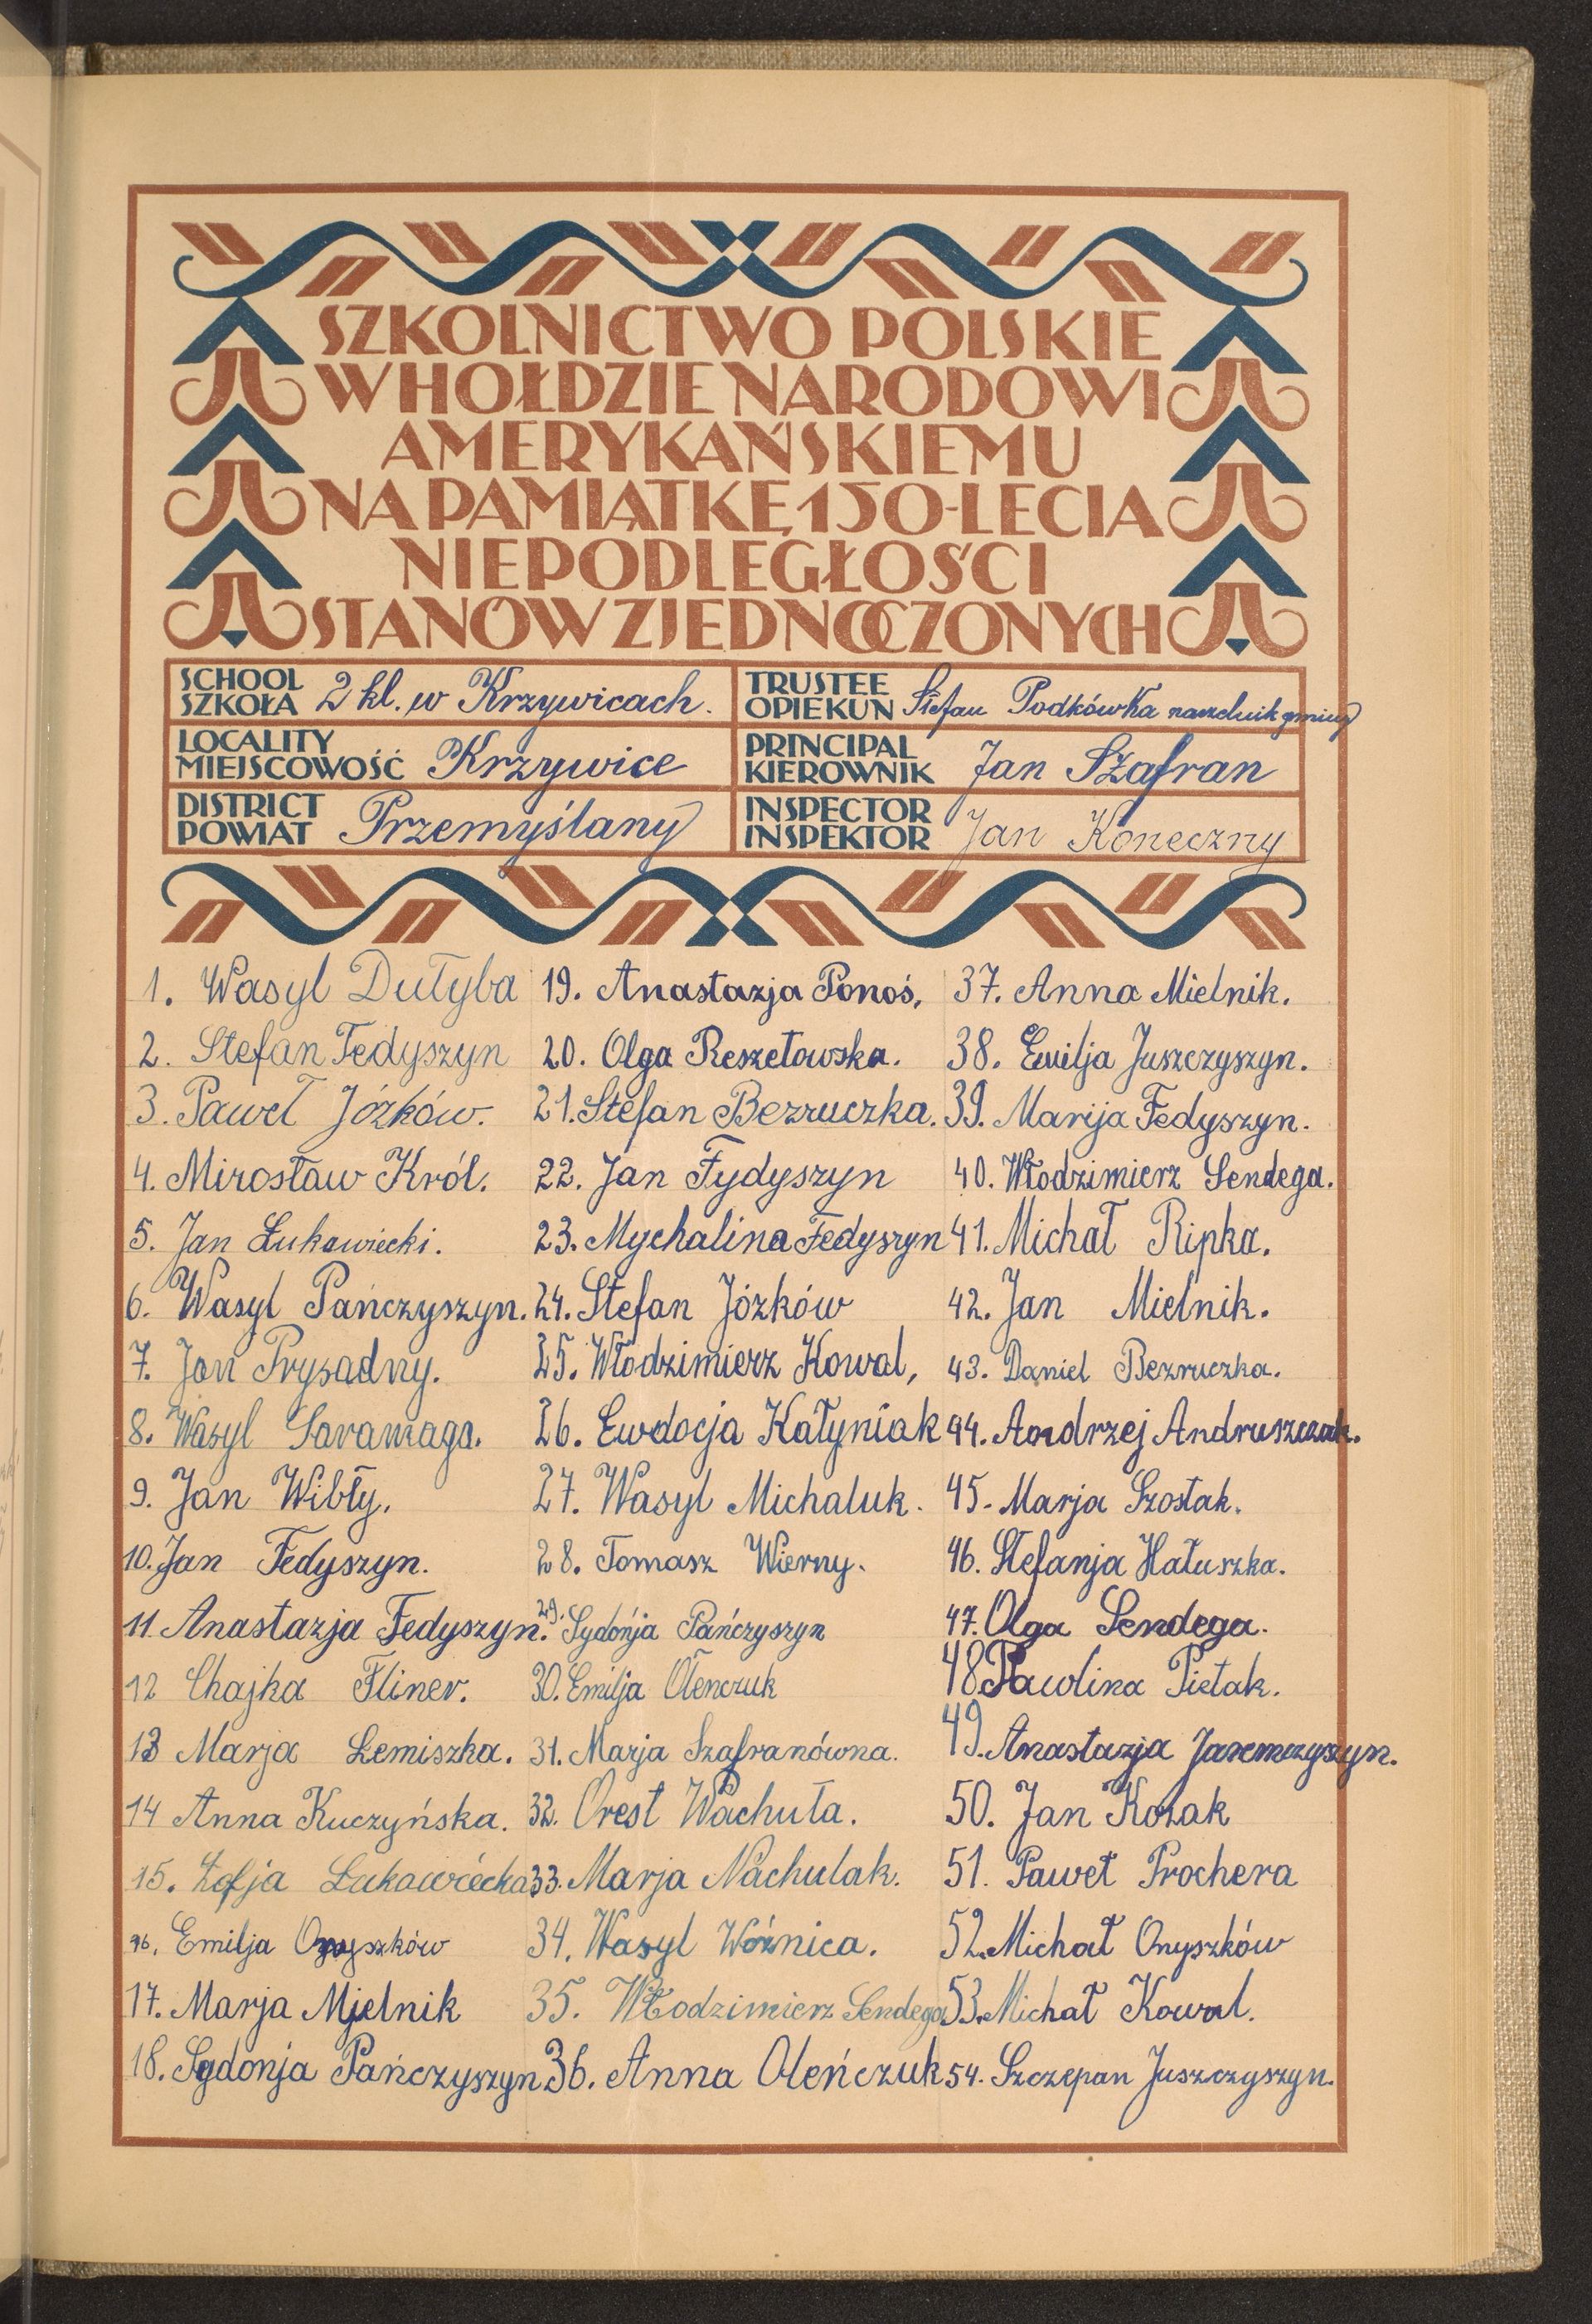 SZKOLNICTWO POLSKIE
W HOŁDZIE NARODOWI
AMERYKAŃSKIEMU
NA PAMIĄTKĘ 150-LECIA
NIEPODLEGŁOŚCI
STANÓW ZJEDNOCZONYCH
SCHOOL
SZKOŁA 2 kl. w Krzywicach.
TRUSTEE
OPIEKUN Stefan Podkówka naczelnik gminy
LOCALITY
MIEJSCOWOŚĆ Krzywice
PRINCIPAL
KIEROWNIK Jan Szafran
DISTRICT
POWIAT Przemyślany
INSPECTOR
INSPEKTOR Jan Koneczny
1. Wasyl Dutyba
2. Stefan Fedyszyn
3. Paweł Józków.
4. Mirosław Król.
5. Jan Łukawiecki.
6. Wasyl Pańczyszyn.
7. Jan Prysadny.
8. Wasyl Saramaga.
9. Jan Wibły.
10. Jan Fedyszyn.
11. Anastazja Fedyszyn.
12 Chajka Fliner.
13 Marja Lemiszka.
14 Anna Kuczyńska.
15. Zofja Łukawiecka
16. Emilja Onyszków
17. Marja Mjelnik
18. Sydonja Pańczyszyn
19. Anastazja Ponoś.
20. Olga Reszetowska.
21. Stefan Bezruczka.
22. Jan Fydyszyn
23. Mychalina Fedyszyn
24. Stefan Józków
25. Włodzimierz Kowal,
26. Ewdocja Kałyniak
27. Wasyl Michaluk.
28. Tomasz Wierny.
29. Sydońja Pańczyszyn
30. Emilja Olenczuk
31. Marja Szafranówna.
32. Orest Wachuła.
33. Marja Nachulak.
34. Wasyl Woźnica.
35. Włodzimierz Sendega
36. Anna Oleńczuk
37. Anna Mielnik.
38. Emilja Juszczyszyn.
39. Marija Fedyszyn.
40. Włodzimierz Sendega.
41. Michał Ripka.
42. Jan Mielnik.
43. Daniel Bezruczka.
44. Andrzej Andruszczak.
45. Marja Szostak.
46. Stefanja Hałuszka.
47. Olga Sendega.
48. Pawlina Pietak.
49. Anastazja Jaremczyszyn.
50. Jan Kozak
51. Paweł Prochera
52. Michał Onyszków
53. Michał Kowal.
54. Szczepan Juszczyszyn.